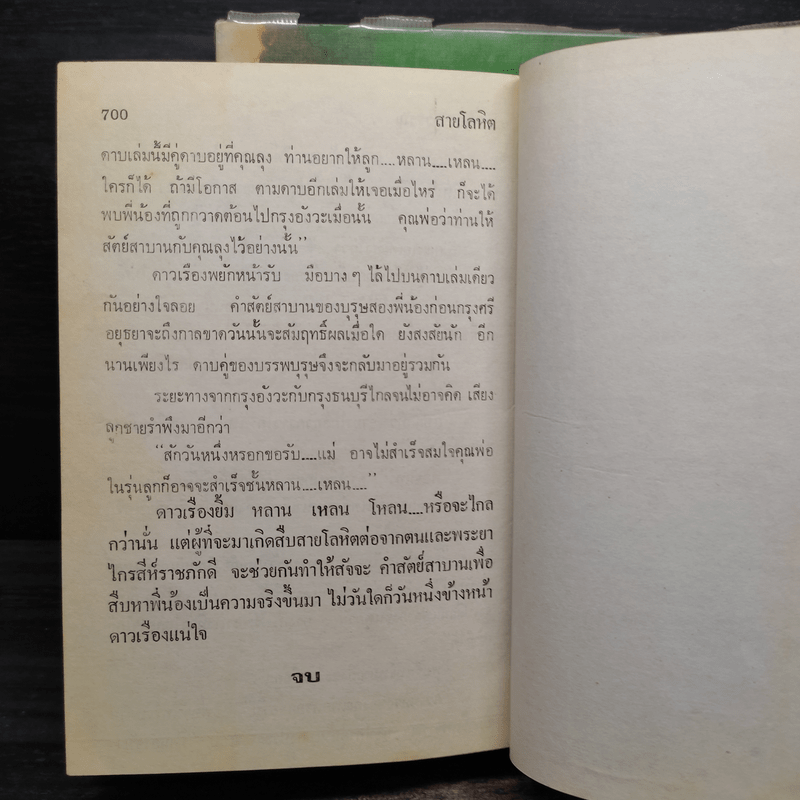 700
สายโลหิต
ดาบเล่มนี้มีคู่ดาบอยู่ที่คุณลุง ท่านอยากให้ลูก....หลาน....เหลน....
ใครก็ได้ ถ้ามีโอกาส ตามดาบอีกเล่มให้เจอเมื่อไหร่ ก็จะได้
พบพี่น้องที่ถูกกวาดต้อนไปกรุงอังวะเมื่อนั้น คุณพ่อว่าท่านให้
สัตย์สาบานกับคุณลุงไว้อย่างนั้น”
ดาวเรืองพยักหน้ารับ มือบาง ๆ ไล้ไปบนดาบเล่มเดียว
กันอย่างใจลอย คำสัตย์สาบานของบุรุษสองพี่น้องก่อนกรุงศรี
อยุธยาจะถึงกาลขาดวันนั้นจะสัมฤทธิ์ผลเมื่อใด ยังสงสัยนัก อีก
นานเพียงไร ดาบคู่ของบรรพบุรุษจึงจะกลับมาอยู่รวมกัน
ระยะทางจากกรุงอังวะกับกรุงธนบุรีไกลจนไม่อาจคิด เสียง
ลูกชายรำพึงมาอีกว่า
“สักวันหนึ่งหรอกขอรับ....แม่ อาจไม่สำเร็จสมใจคุณพ่อ
ในรุ่นลูกก็อาจจะสำเร็จชั้นหลาน....เหลน....”
ดาวเรืองยิ้ม หลาน เหลน โหลน....หรือจะไกล
กว่านั่น แต่ผู้ที่จะมาเกิดสืบสายโลหิตต่อจากตนและพระยา
ไกรสีห์ราชภักดี จะช่วยกันทำให้สัจจะ คำสัตย์สาบานเพื่อ
สืบหาพี่น้องเป็นความจริงขึ้นมา ไม่วันใดก็วันหนึ่งข้างหน้า
ดาวเรืองแน่ใจ
จบ